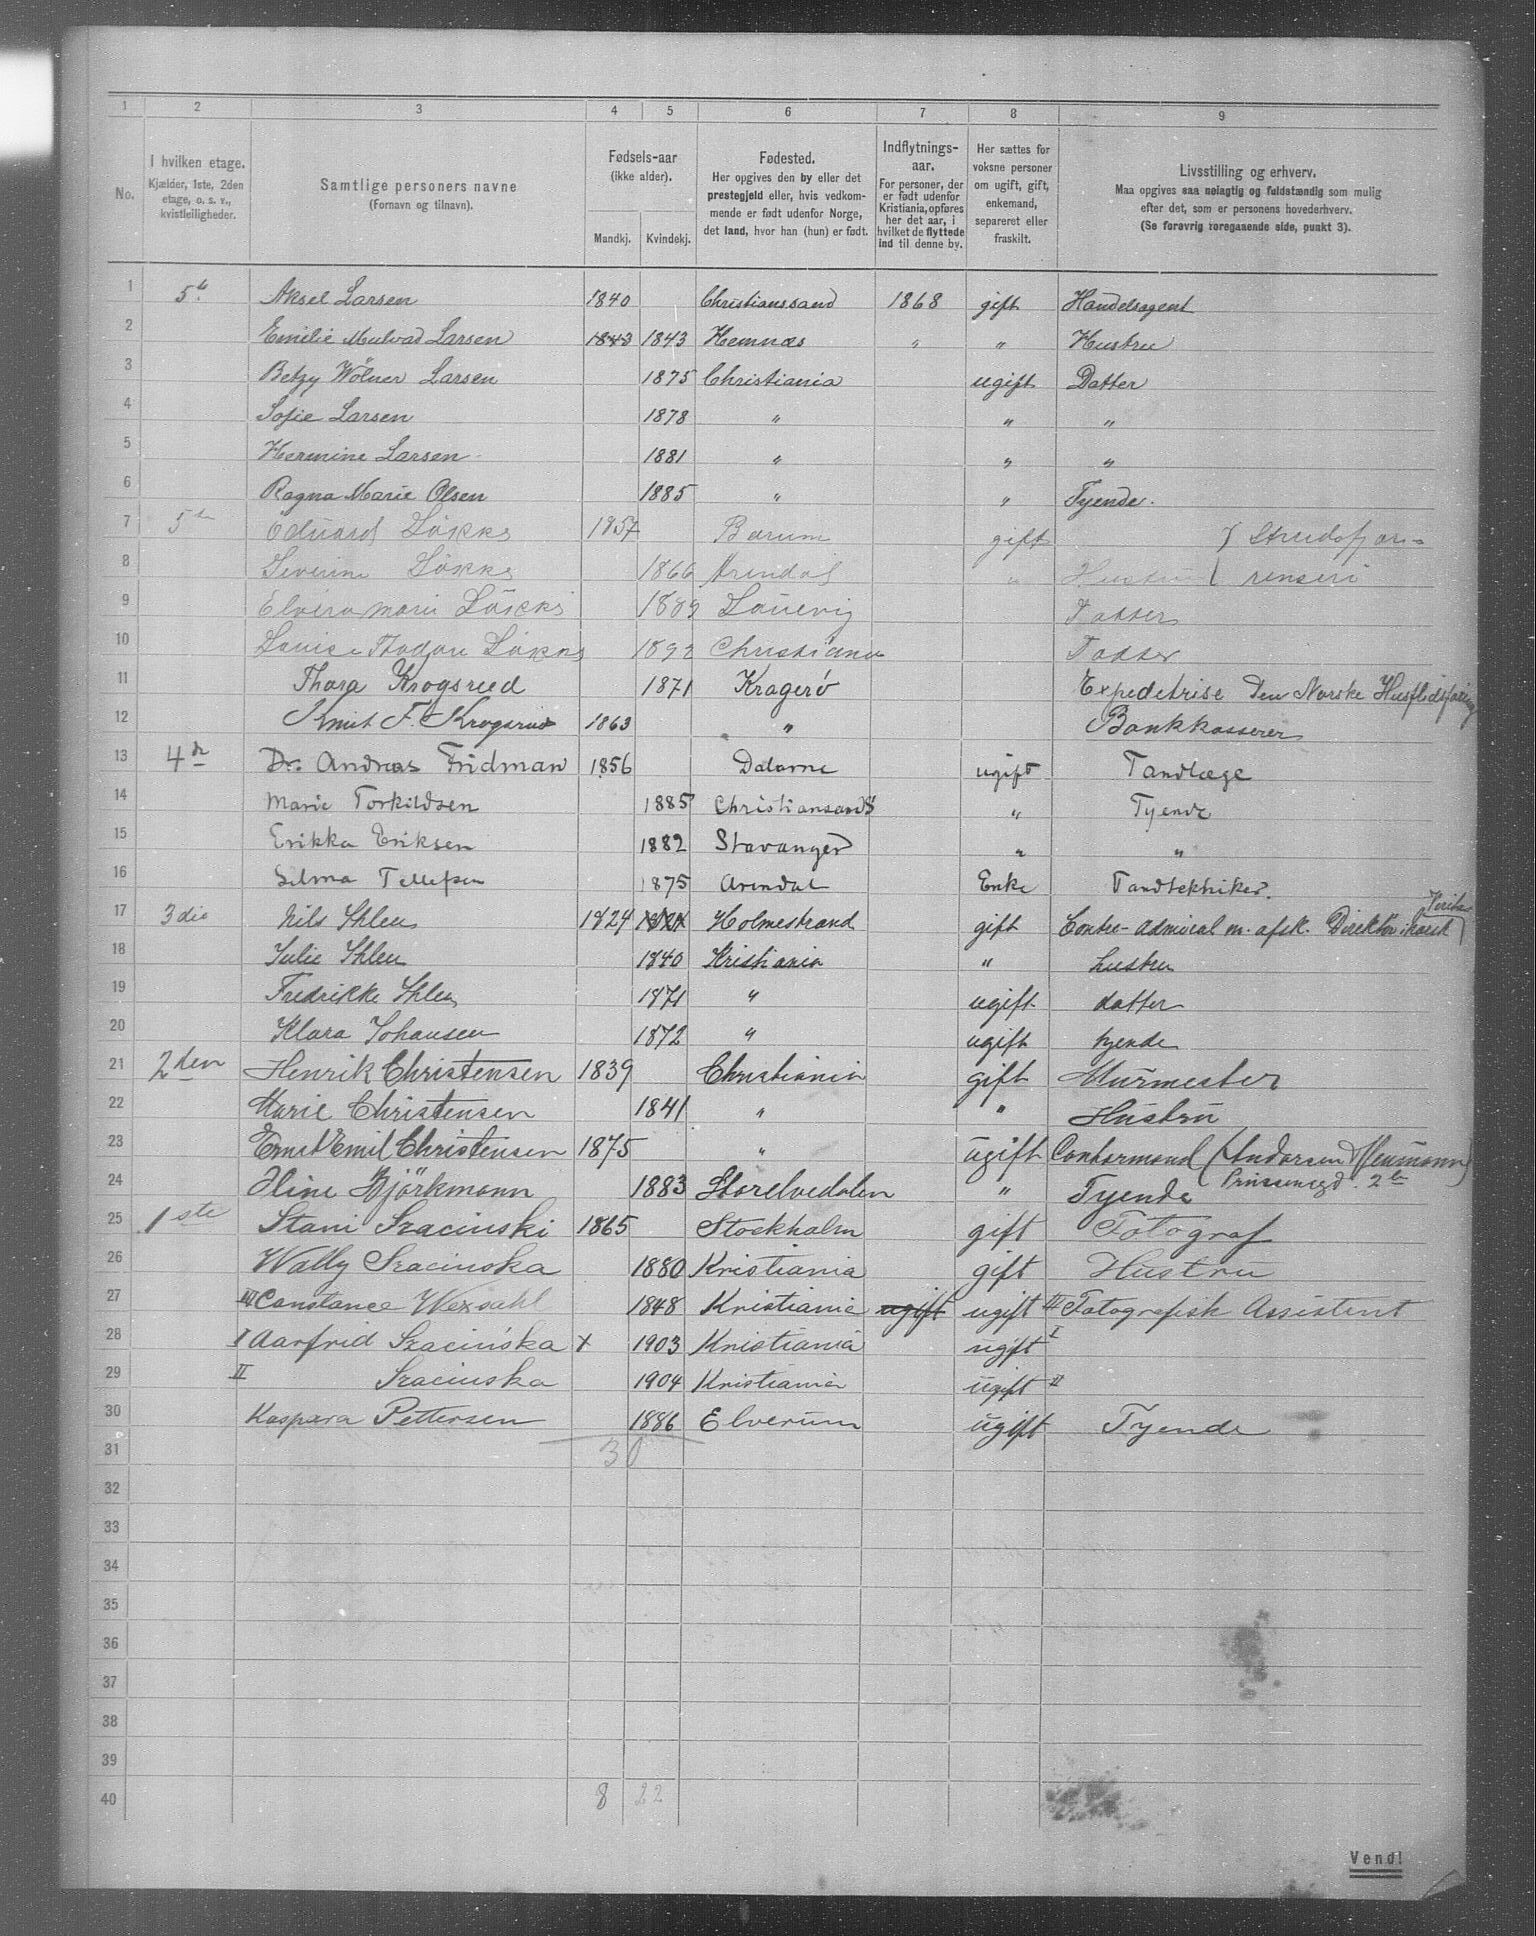 1 2 3 4 5 6 7 8 9
No.
I hvilken etage.
Kjælder, 1ste, 2den
etage, o. s. v.,
kvistleiligheder.
Samtlige personers navne
(Fornavn og tilnavn).
Fødsels-aar
(ikke alder).
Mandkj. Kvindekj.
Fødested.
Her opgives den by eller det
prestegjeld eller, hvis vedkom-
mende er født udenfor Norge,
det land, hvor han (hun) er født.
Indflytnings-
aar.
For personer, der
er født udenfor
Kristiania, opføres
her det aar, i
hvilket de flyttede
ind til denne by.
Her sættes for
voksne personer
om ugift, gift,
enkemand,
separeret eller
fraskilt.
Livsstilling og erhverv.
Maa opgives saa nøiagtig og fuldstændig som mulig
efter det, som er personens hovederhverv.
(Se forøvrig foregaaende side, punkt 3).
1 5te Aksel Larsen 1840 Christianssand 1868 gift Handelsagent
2 Emilie Mulvad Larsen 1843 1843 Hemnæs " " Hustru
3 Betzy Wölner Larsen 1875 Christiania ugift Datter
4 Sofie Larsen 1878 " " "
5 Hermine Larsen 1881 " " "
6 Ragna Marie Olsen 1885 " " Tyende.
7 5te Edüard Lökke 1857 Bærum gift } Strudsfjær=
8 Severine Lökke 1866 Arendal " Hustrü { renseri
9 Elvira Marie Lökke 1889 Laurvig Datter
10 Louise Thodore Lökke 1892 Christiania Datter
11 Thora Krogsrud 1871 Kragerö Expeditrise Den Norske Husflidsforening
12 Knut F. Krogsrud 1863 " Bankkasserer
13 4de Dr. Andreas Fridman 1856 Dalarne ugift Tandlæge
14 Marie Torkildsen 1885 Christiansand " Tyende
15 Erikka Eriksen 1882 Stavanger " "
16 Selma Tellefsen 1875 Arendal Enke Tandtekniker.
17 3die Nils Ihlen 1824 1824 Holmestrand gift Contre-Admiral m. afsk. Direktör i norsk Veritas
18 Julie Ihlen 1840 Kristiania " hustru
19 Fredrikke Ihlen 1871 " ugift datter
20 Klara Johansen 1872 " ugift tyende
21 2den Henrik Christensen 1839 Christiania gift Mürmester
22 Marie Christensen 1841 " " Hüstrü
23 Ernst Emil Christensen 1875 " ügift Contormand (Andersen & Neumann)
Prinsensgd. 2b
24 Oline Björkmann 1883 Storelvedalen " Tyende
25 1ste Stani Szacinski 1865 Stockholm gift Fotograf
26 Wally Szacinska 1880 Kristiania gift Hüstrü
27 III Constance Wexsahl 1848 Kristiania ugift ugift III Fotografisk Assistent
28 I Aarfrid Szacińska x 1903 Kristiania ugift I
29 II Szacinska 1904 Kristiania ugift II
30 Kaspara Pettersen 1886 Elverum ugift Tyende
31 30
32
33
34
35
36
37
38
39
40 8 22
Vend!